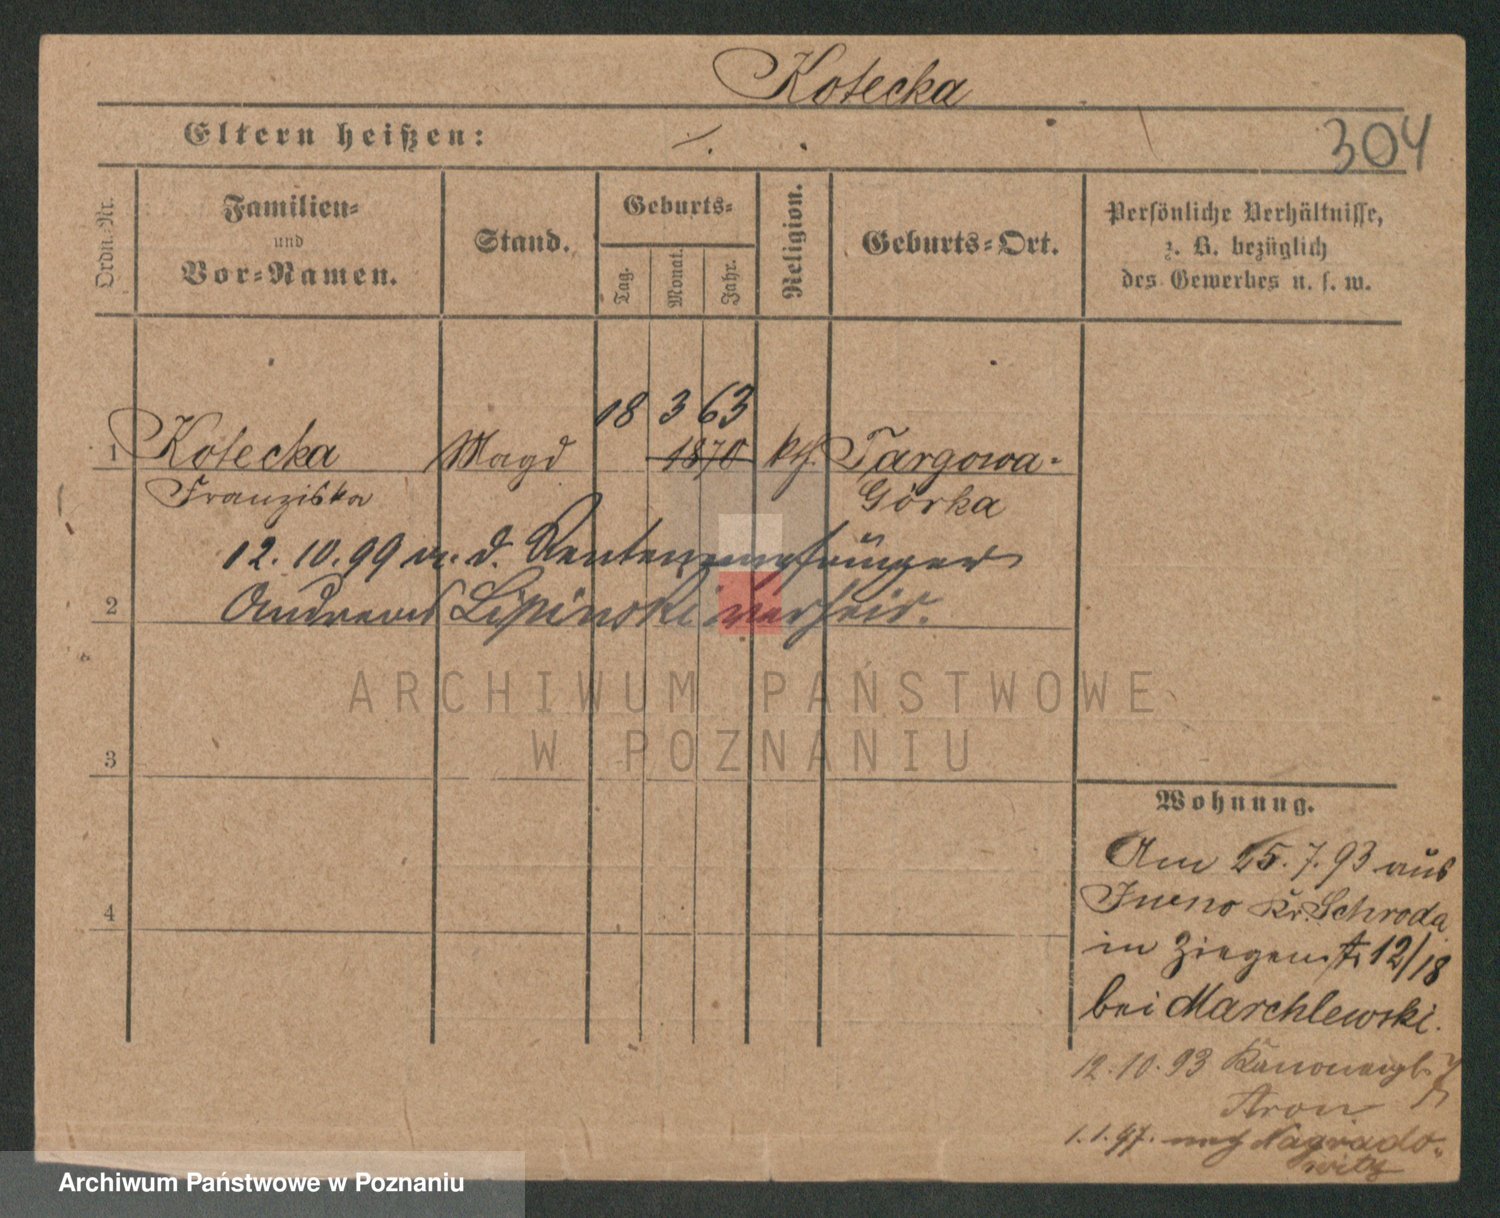 Kotecka
Eltern heißen: ./.
304
Ordn.-Nr.
Familien-
und
Vor-Namen.
Stand.
Geburts-
Tag.
Monat.
Jahr.
Religion.
Geburts-Ort.
Persönliche Verhältnisse,
z. B. bezüglich
des Gewerbes u. s. w.
18 3 63
1 Kotecka Magd 1870 kth. Targowa-
Franziska Górka
12. 10. 99 m. d. Rentenempfänger
2 Andreas Lipinski verheir.
ARCHIWUM PAŃSTWOWE
W POZNANIU
3
Wohnung.
Am 25. 7. 93 aus
Kr. Schroda
4
in Ziegenstr. 12/18
bei Marchlewski.
12. 10. 93 Kanonenpl.
Aron
1. 1. 97. nach Nagrado-
witz
Archiwum Państwowe w Poznaniu